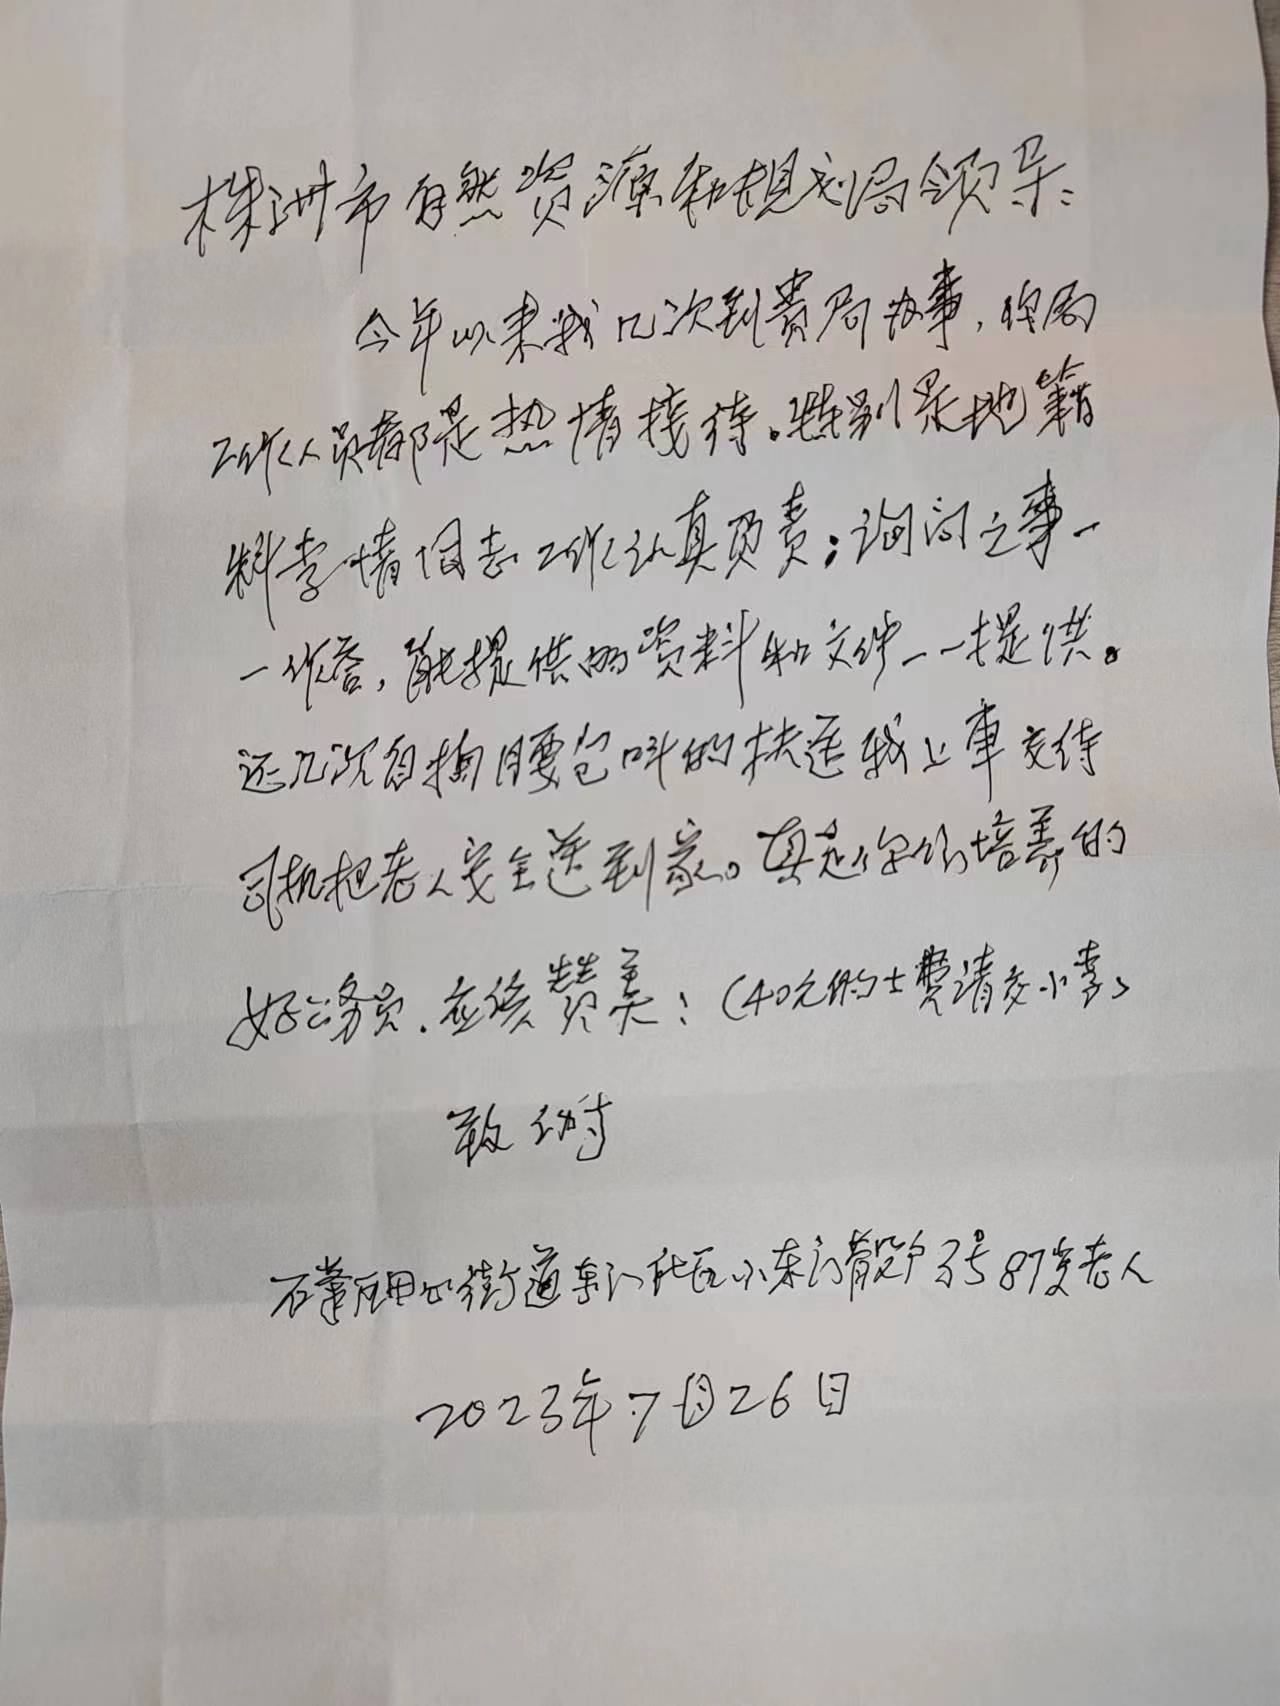 株洲市自然资源和规划局领导：
今年以来我几次到贵局办事，贵局
工作人员都是热情接待。特别是地籍
科李情同志工作认真负责；询问之事一
一作答，能提供的资料和文件一一提供。
还几次自掏腰包叫的扶送我上車交待
司机把老人安全送到家。真是你们培养的
好公务员．应该赞美！（40元的士费请交小李）
敬礼
石峰区田心街道东门社区小东门散户3号87岁老人
2023年7月26日